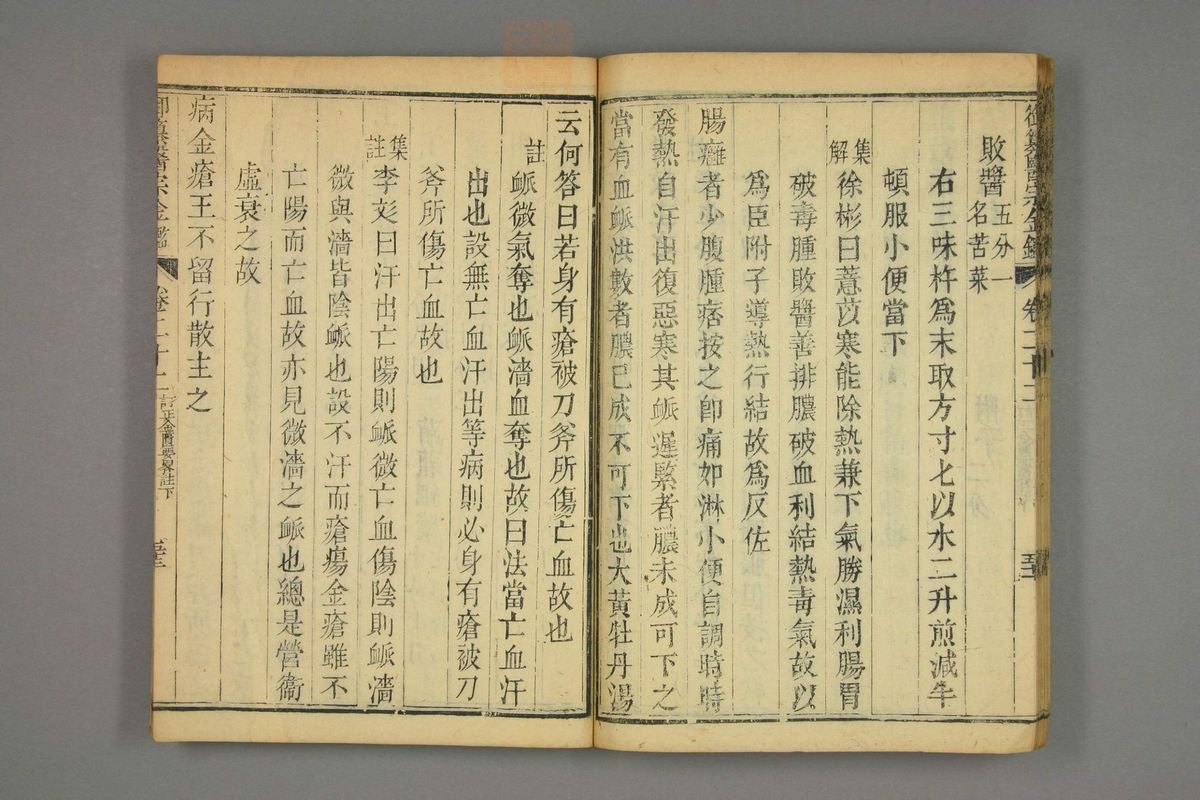 御纂醫宗金鑑 卷二十二
敗醬五分一名苦菜
右三味杵爲末取方寸匕以水二升煎減半
頓服小便當下
集解徐彬曰薏苡寒能除熱兼下氣勝濕利腸胃
破毒腫敗醬善排膿破血利結熱毒氣故以
爲臣附子導熱行結故爲反佐
腸癰者少腹腫痞按之卽痛如淋小便自調時時
發熱自汗出復惡寒其脈遲緊者膿未成可下之
當有血脈洪數者膿已成不可下也大黃牡丹湯
云何答曰若身有瘡被刀斧所傷亡血故也
註脈微氣奪也脈濇血奪也故曰法當亡血汗
出也設無亡血汗出等病則必身有瘡被刀
斧所傷亡血故也
集註李彣曰汗出亡陽則脈微亡血傷陰則脈濇
微與濇皆陰脈也設不汗而瘡瘍金瘡雖不
亡陽而亡血故亦見微濇之脈也總是營衞
虛衰之故
病金瘡王不留行散主之
御纂醫宗金鑑 卷二十二 訂正金匱要畧註下